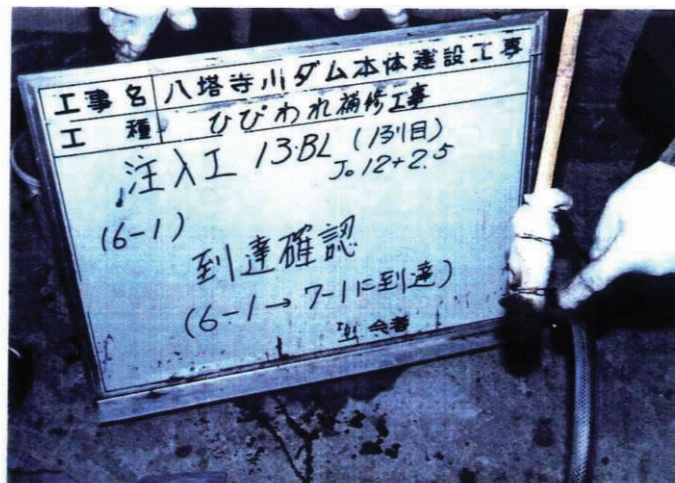 工事名 八塔寺川ダム本体建設工事
工種 ひびわれ補修工事
注入工 13・BL (1列目)
J。12+2.5
(6-1)
到達確認
(6-1→7-1に到達)